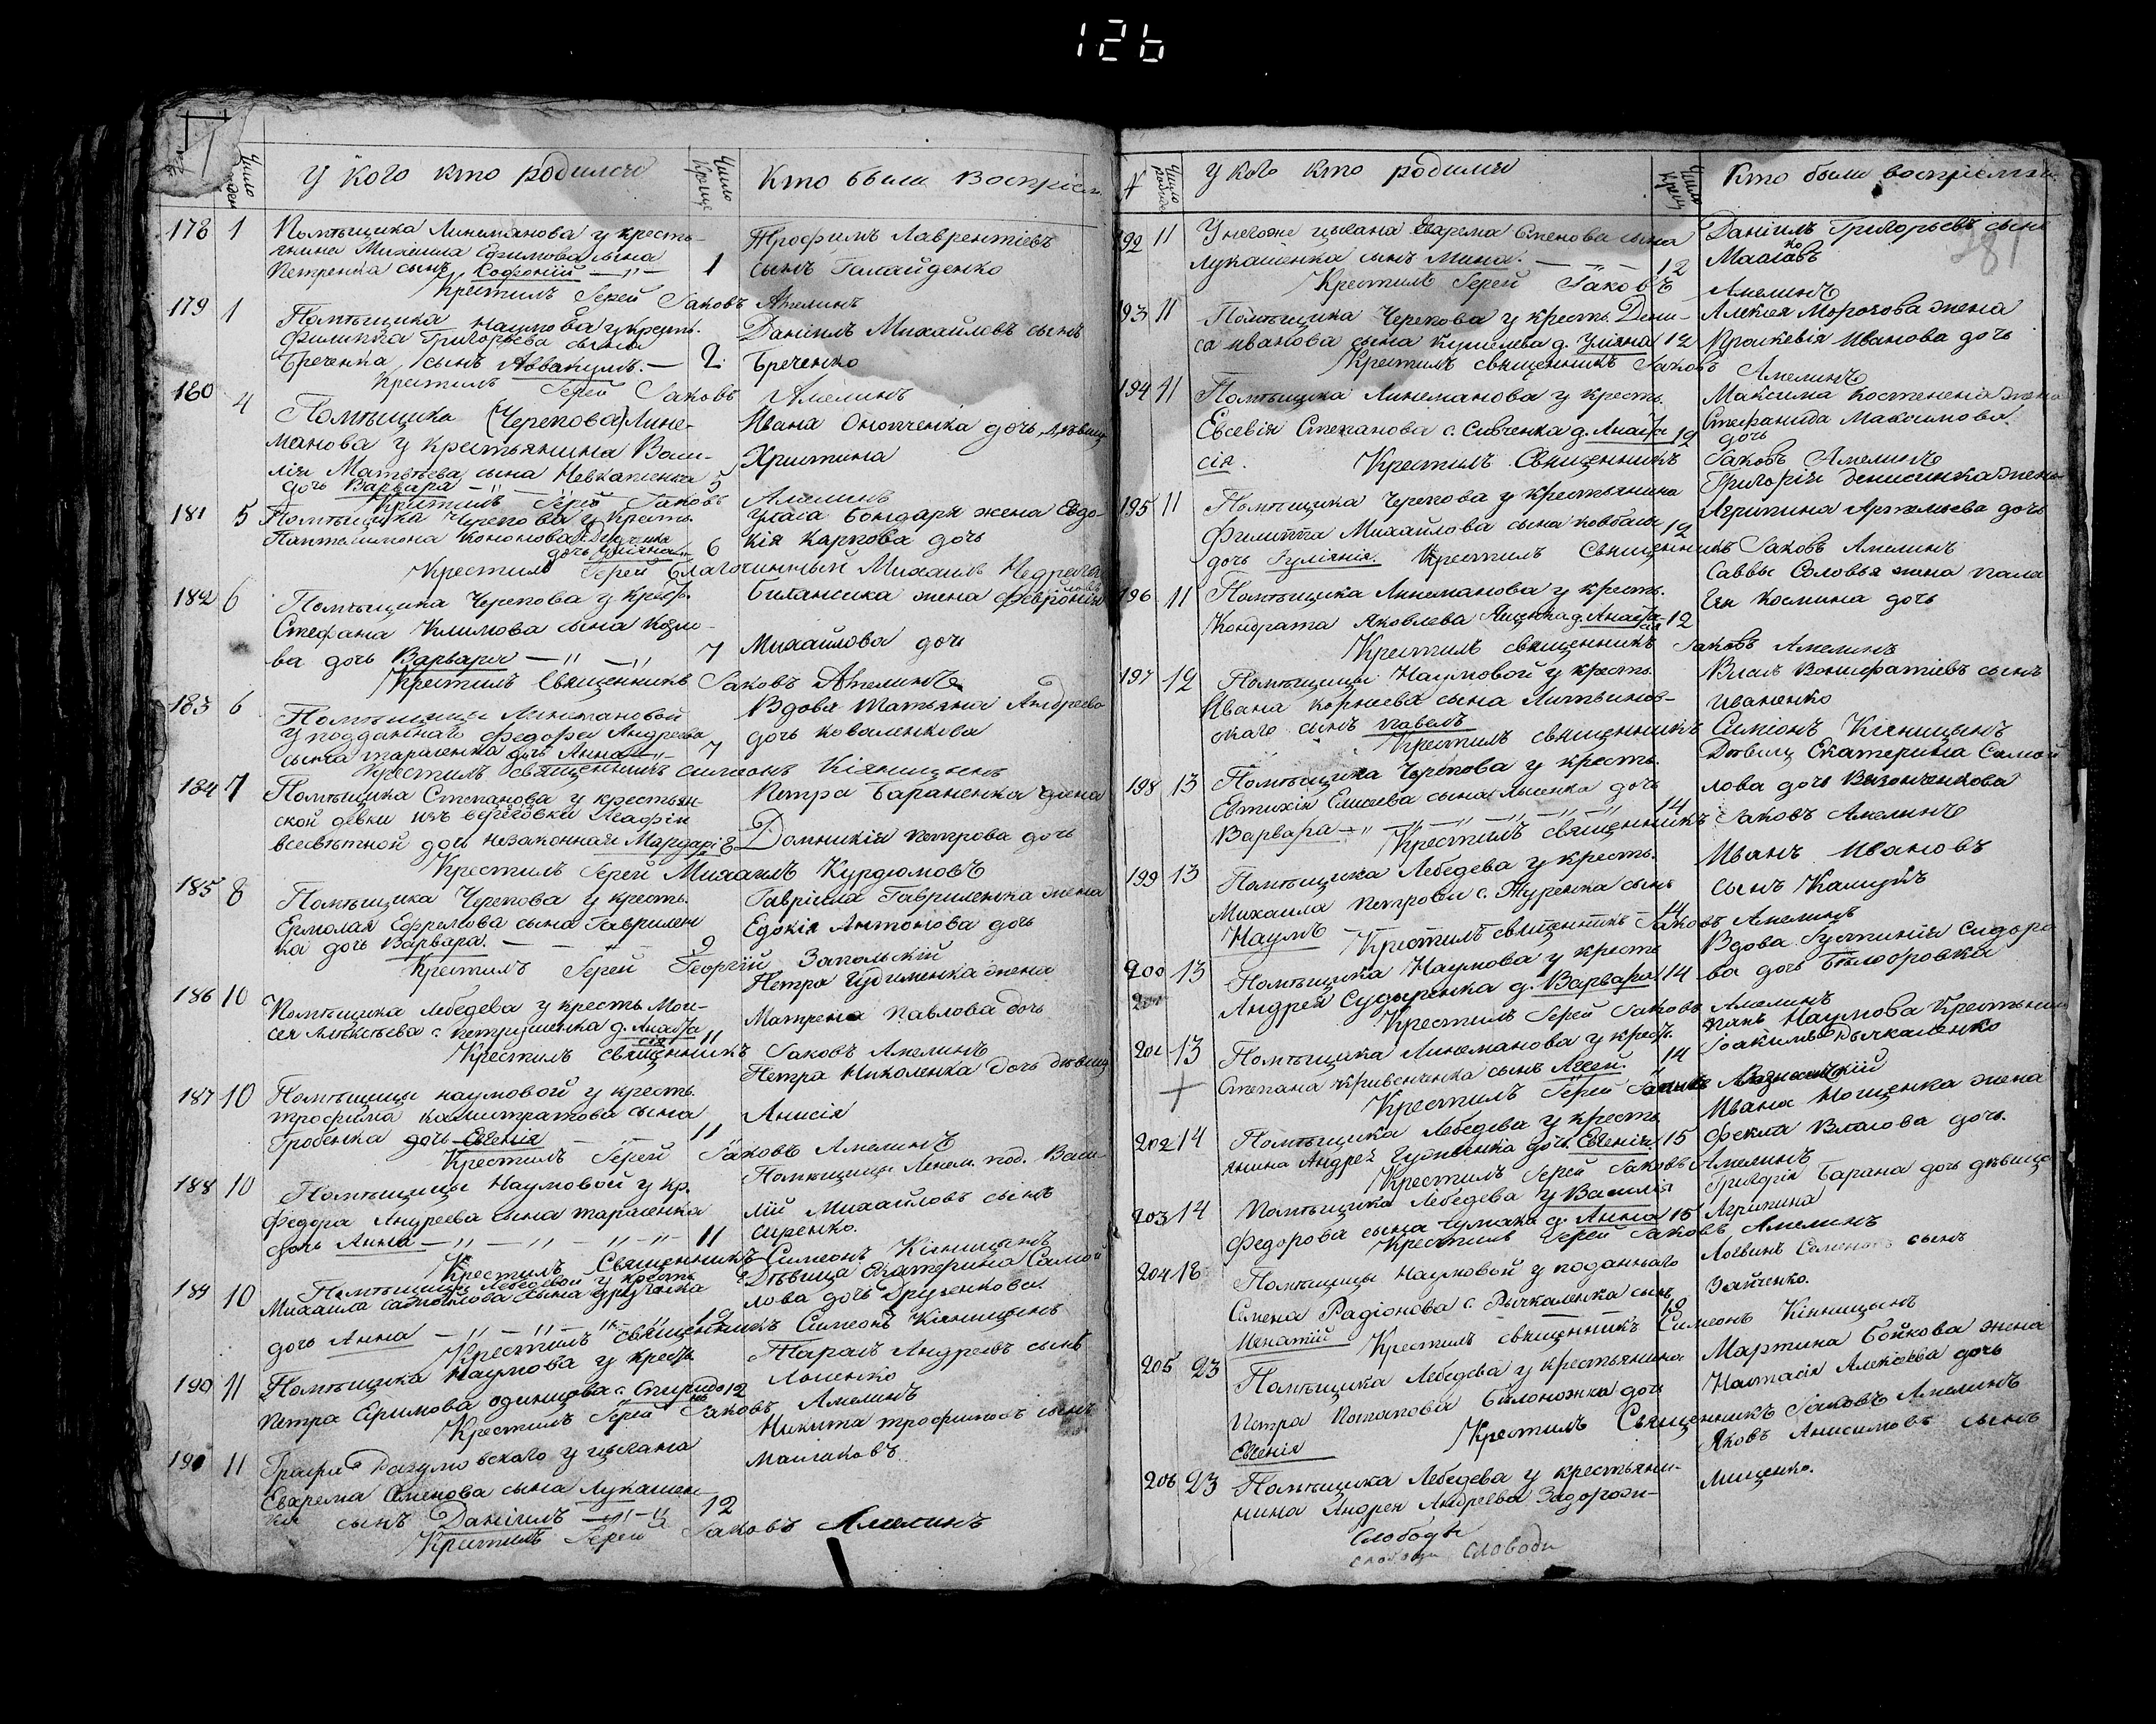 126
У кого кто родился
Кто были Воспріем
178 1 Помѣщика Линеманова у кресть-
янина Михаила Ефимова сына
Петренка сынъ Софроній 1
Трофимъ Лаврентіевъ
сынъ Галайденко
Крестилъ Іерей Іаковъ Амелинъ
179 1 Помѣщика Наумова у крестъ.
Филиппа Григорьева сына
Бреченка сынъ Аввакумъ. 2
Даніилъ Михайловъ сынъ
Бреченко
Крестилъ Іерей Іаковъ Амелинъ
180 4 Помѣщика (Черепова) Лине-
манова у крестьянина Васи-
лія Матвѣева сына
дочь Варвара 5
Ивана дочь дѣвица
Христина
Крестилъ Іерей Іаковъ Амелинъ
181 5 Помѣщика Черепова у крестъ.
Пантелимона Кононова
дочь Уліяна 6
Уласа Бондаря жена Евдо-
кія Карпова дочь
Крестилъ Іерей Благочинный Михаилъ
182 6 Помѣщика Черепова у крест.
Стефана Климова сына Козло-
ва дочь Варвара 7
жена Февронія
Михайлова дочь
Крестилъ Священникъ Іаковъ Амелинъ
183 6 Помѣщицы Линемановой
у подданнаго Федора Андреева
сына Тарасенка дочь Анна 7
Вдова Татьяна Андреева
дочь Коваленкова
Крестилъ Священникъ Симеонъ Кіяницынъ
184 7 Помѣщика Степанова у крестьян-
ской девки изъ
дочь незаконная 8
Петра Бараненка жена
Домникія Петрова дочь
Крестилъ Іерей Михаилъ Курдюмовъ
185 8 Помѣщика Черепова у кресть.
Ермолая Ефремова сына Гаврилен
ка дочь Варвара. 9
Гавріила Гавриленка жена
Едокія Антонова дочь
Крестилъ Іерей Георгій Запольскій
186 10 Помѣщика Лебедева у кресть. Мои-
сея Алексѣева с. Петрушенка д. Анаста
сія 11
Петра жена
Матрена Павлова дочь
Крестилъ священникъ Іаковъ Амелинъ
187 10 Помѣщицы Наумовой у кресть.
Трофима Калистратова сына
Гробенка дочь Евгенія 11
Петра Николенка дочь дѣвиц
Анисія
Крестилъ Іерей Іаковъ Амелинъ
188 10 Помѣщицы Наумовой у кр.
Федора Андреева сына Тарасенка
дочь Анна 11
Помѣщицы Линем. под. Васи-
лій Михайловъ сынъ
Сиренко.
Крестилъ Священникъ Симеонъ Кіяницынъ
189 10 Помѣщицы Лебедевой у кресть
Михаила Самойлова сына
дочь Анна
Дѣвица Екатерина Самой
лова дочь
Крестилъ священникъ Симеонъ Кіяницынъ
190 11 Помѣщика Наумова у крестъ
Петра Ефимова Одинцова с. Спиридо 12
Тарасъ Андреевъ сынъ
Лысенко
Крестилъ Іерей Іаковъ Амелинъ
191 11 Графа Разумовского у цыгана
Евхрема Семенова сына Лукашен
ка сынъ Даніилъ 12
Никита Трофимовъ сынъ
Маслаковъ.
Крестилъ Іерей Іаковъ Амелинъ
У кого кто родился
Кто были воспріемни
192 11 У негоже цыгана Евхрема Семенова сына
Лукашенка сынъ Мина. 12
Даніилъ Григорьевъ сынъ
281
Крестилъ Іерей Іаковъ Амелинъ
193 11 Помѣщика Черепова у кресть. Дени-
са Иванова сына д. Уліяна 12
Алексея Морозова жена
Праскевія Иванова дочь
Крестилъ священникъ Іаковъ Амелинъ
194 11 Помѣщика Линеманова у кресть.
Евсевія Степанова с. Сивченка д. Анаста 12
сія.
Максима жена
Стефанида Максимова
дочь
Крестилъ Священникъ Іаковъ Амелинъ
195 11 Помѣщика Черепова у крестьянина
Филиппа Михайлова сына Ковбасы 12
дочь Іуліянія.
Григорія Денисенка жена
Агрипина Артемьева дочь
Крестилъ Священникъ Іаковъ Амелинъ
196 11 Помѣщика Линеманова у кресть.
Кондрата Яковлева Яценка д. Анаста 12
Саввы Соловья жена Пела
гея Космина дочь
Крестилъ священникъ Іаковъ Амелинъ
197 12 Помѣщицы Наумовой у кресть.
Ивана Корнеева сына Литвинов-
скаго сынъ Павелъ
Власъ Вонифатіевъ сынъ
Иваненко
Крестилъ священникъ Симіонъ Кіяницынъ
198 13 Помѣщика Черепова у кресть.
Евтихія Елисеева сына Лысенка дочь
Варвара 14
Дѣвица Екатерина Самой
лова дочь
Крестилъ священникъ Іаковъ Амелинъ
199 13 Помѣщика Лебедева у кресть.
Михаила Петрова с. Туренка сынъ
Наумъ 14
Иванъ Ивановъ
сынъ
Крестилъ священникъ Іаковъ Амелинъ
200 13 Помѣщика Наумова у кресть
Андрея д. Варвара 14
Вдова Іустинія Сидоро
ва дочь Бѣлобровка
Крестилъ Іерей Іаковъ Амелинъ
201 13 Помѣщика Линеманова у крест.
Степана Кривенченка сынъ Агей. 14
пана Наумова Крестьянин
Іоакимъ Дычкаленко
Крестилъ Іерей
202 14 Помѣщика Лебедева у кресть
янина Андрея дочь Евгенія 15
Ивана Нощенка жена
Фекла Власова дочь.
Крестилъ Іерей Іаковъ Амелинъ
203 14 Помѣщика Лебедева у Василія
Федорова сына Чумака д. Анна 15
Григорія Барана дочь дѣвица
Агрипина
Крестилъ Іерей Іаковъ Амелинъ
204 18 Помѣщицы Наумовой у поданнаго
Семена Радіонова с. Рычкаленка сынъ
Игнатій
Логвинъ Семеновъ сынъ
Зайченко.
Крестилъ священник Симеонъ Кіяницынъ
205 23 Помѣщика Лебедева у крестьянина
Петра Потапова Билоножка дочь
Евгенія
Мартина Бойкова жена
Настасія Алексѣева дочь
Крестилъ Священникъ Іаковъ Амелинъ
206 23 Помѣщика Лебедева у крестьяни-
нина Андрея Андреева Задорож-
Яковъ Анисимовъ сынъ
Мищенко.
Слободы
слободи Слободи